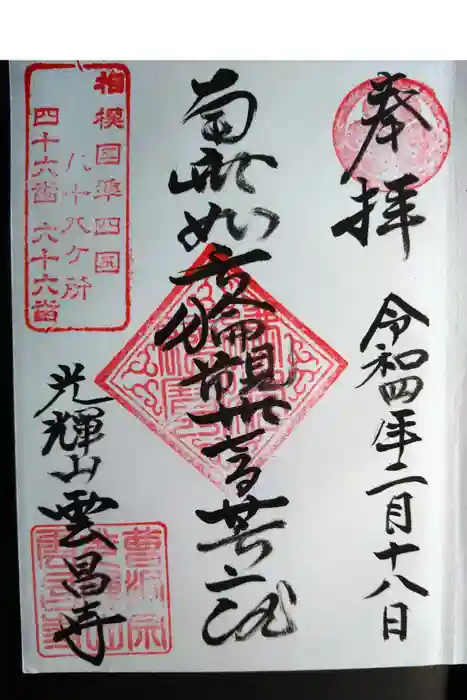 奉拝
令和四年二月十八日
南無如意輪観世音菩薩
相模国準四国
八十八ケ所
四十六番 六十六番
光輝山雲昌寺
曹洞宗